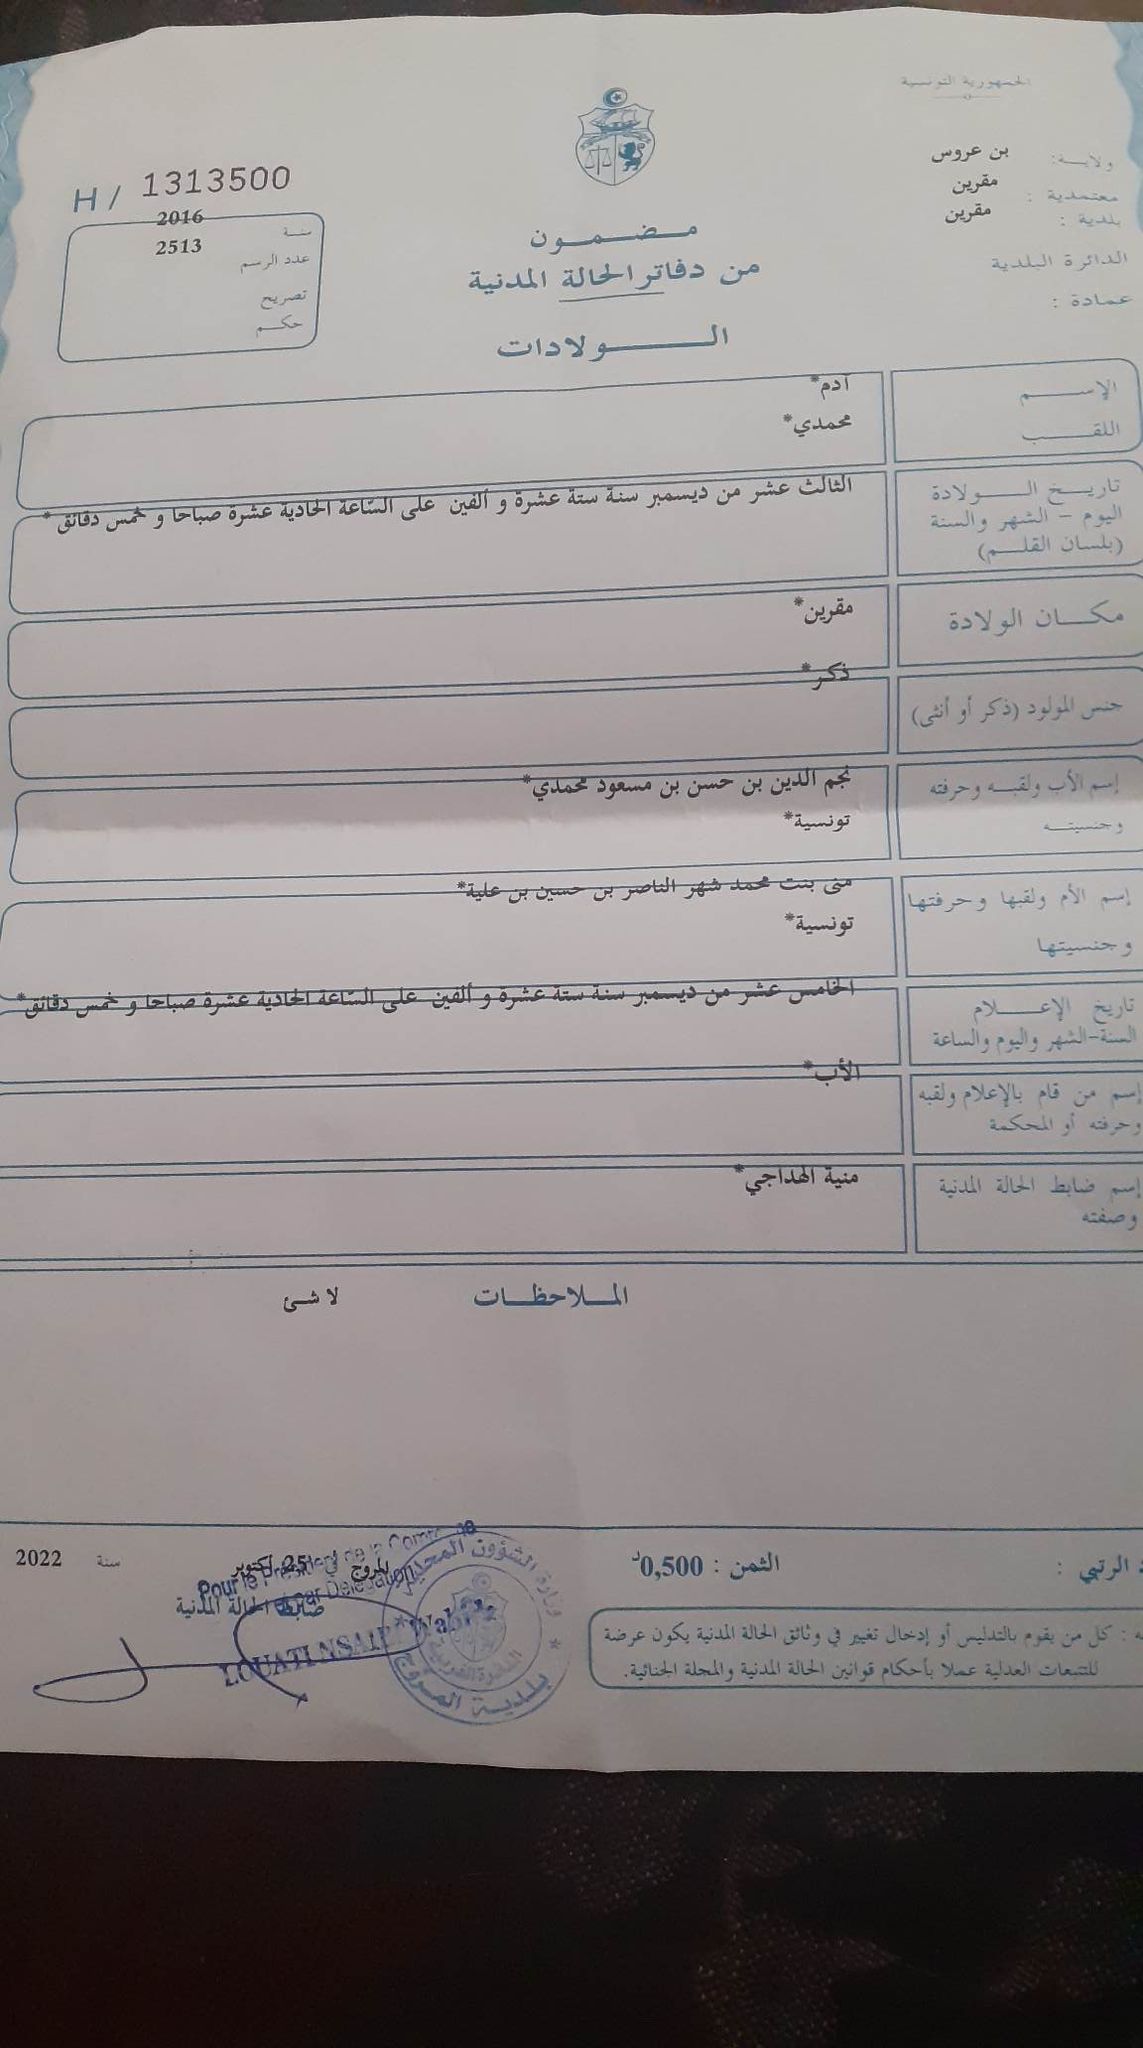 الجمهورية التونسية
ولاية: بن عروس
معتمدية : مقرين
بلدية : مقرين
الدائرة البلدية
عمادة :
H / 1313500
سنة 2016
عدد الرسم 2513
تصريح
حكم
مضمون
من دفاتر الحالة المدنية
الولادات
الإسم آدم*
اللقب محمدي*
تاريخ الولادة
اليوم – الشهر والسنة
(بلسان القلم)
الثالث عشر من ديسمبر سنة ستة عشرة و ألفين على السّاعة الحادية عشرة صباحا و خمس دقائق *
مكان الولادة مقرين*
جنس المولود (ذكر أو أنثى) ذكر*
إسم الأب ولقبه وحرفته
وجنسيته
نجم الدين بن حسن بن مسعود محمدي*
تونسية*
إسم الأم ولقبها وحرفتها
وجنسيتها
منى بنت محمد شهر الناصر بن حسين بن علية*
تونسية*
تاريخ الإعلام
السنة-الشهر واليوم والساعة
الخامس عشر من ديسمبر سنة ستة عشرة و ألفين على السّاعة الحادية عشرة صباحا و خمس دقائق*
إسم من قام بالإعلام ولقبه
وحرفته أو المحكمة
الأب*
إسم ضابط الحالة المدنية
وصفته
منية الهداجي*
الملاحظات لا شئ
الرتبي :
الثمن : 0,500د
المروج في 25 اكتوبر سنة 2022
ضابط الحالة المدنية
Pour le Président de la
par Délégation
LOUATI NSAIR
وزارة الشؤون المحلية
بلدية المروج
: كل من يقوم بالتدليس أو إدخال تغيير في وثائق الحالة المدنية يكون عرضة
للتتبعات العدلية عملا بأحكام قوانين الحالة المدنية والمجلة الجنائية.